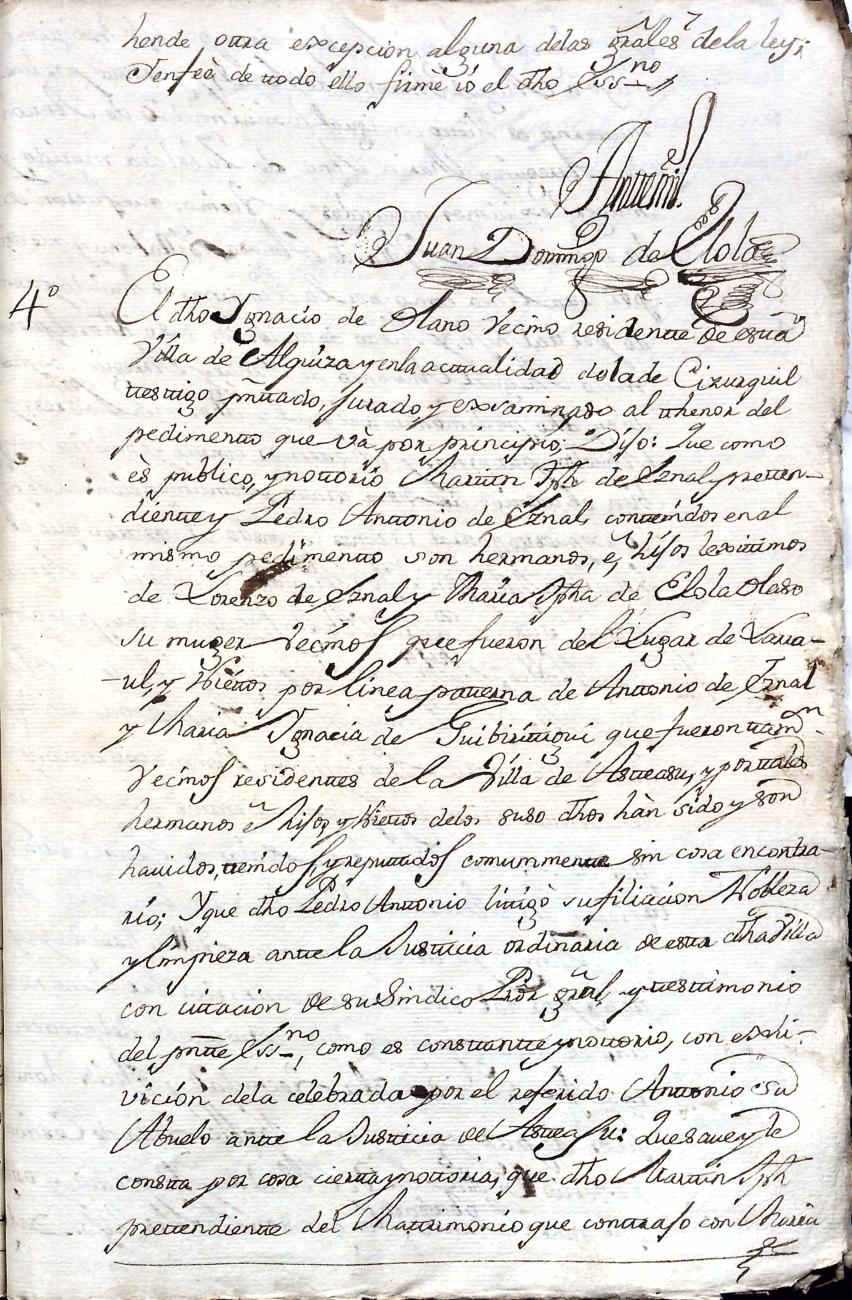 hende otra excepcion alguna delas grâles de la ley;
Tenfeè de ttodo ello firmè iò el dho Ess.no
Anttemi
Juan Domingo de Elola
4º
El dho Ygnacio de Olano Vecino residentte de estta
Villa de Alquiza y enla acttualidad dela de Cizurquil
ttesttigo presenttado, jurado y examinado al tthenor del
pedimentto que và por principio; Dijo: Que como
ès publico, y nottorio Marttin Jph de Eznal, pretten-
dientte y Pedro Anttonio de Eznal, contteñidos enal
mismo pedimentto son hermanos, è, hijos lexittimos
de Lorenzo de Eznal y Maria Jpha de Elola Olaso
su muger Vecinos que fueron del Lugar de Larra-
-ul, y Niettos por linea patterna de Anttonio de Eznal
y Maria Ygnacia de Guibiattiqui que fueron ttam.n
Vecinos residenttes de la Villa de Astteasu, y por ttales
hermanos è hijos, y Niettos delos suso dhos hàn sido y son
hauidos, ttenidos, y reputtados comunmentte sin cosa en conttra-
rio; Y que dho Pedro Anttonio littigò su filiacion Nobleza
y limpieza antte la Justticia ordinaria de estta dha Villa
con cittacion de su Sindico Pror grâl, y ttesttimonio
del pntte Ess.no, como es consttantte y nottorio, con exsi-
vición dela celebrada por el referido Anttonio su
Abuelo antte la Justticia de Astteasu: Que saue y le
constta por cosa cierta y nottoria, que dho Marttin Jph
prettendientte del Mattrimonio que conttrajo con Maria